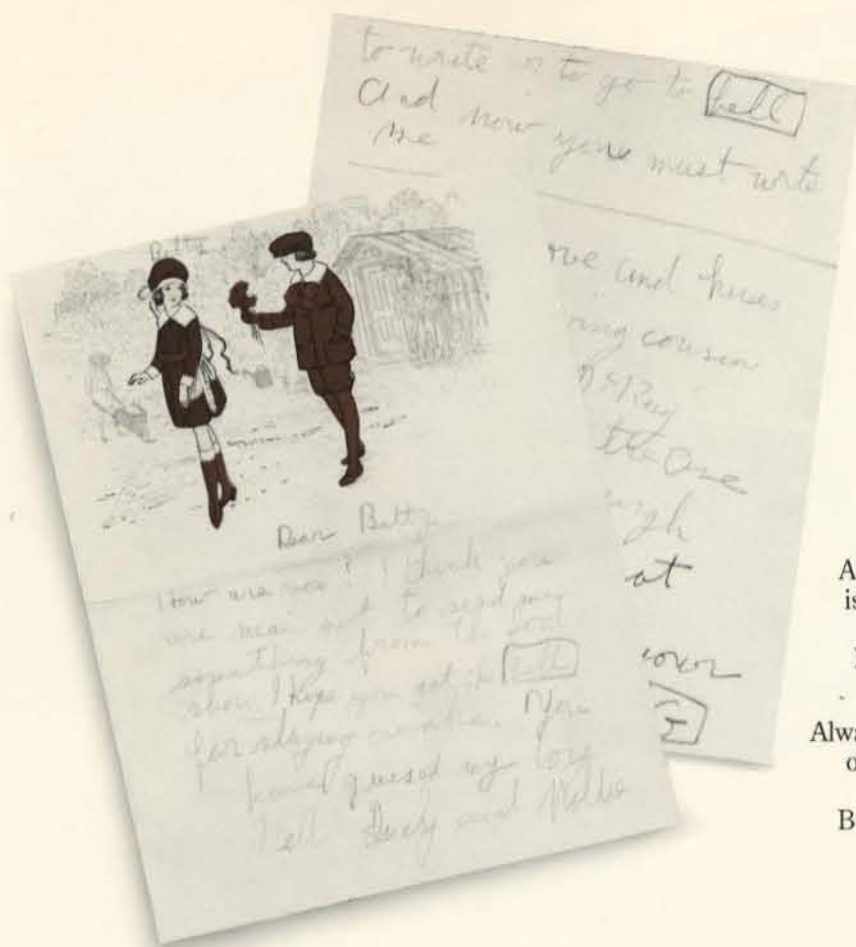 to write to go to hell
And now you must write
me
and kisses
cousin
Ray
the One
at
Betty
Dear Betty
How are you? I think you
are mean not to send my
something from the food
show I hope you get the hell
for staying You
have guesed my
Tell and Mollie
A
is
Alwa
o
B